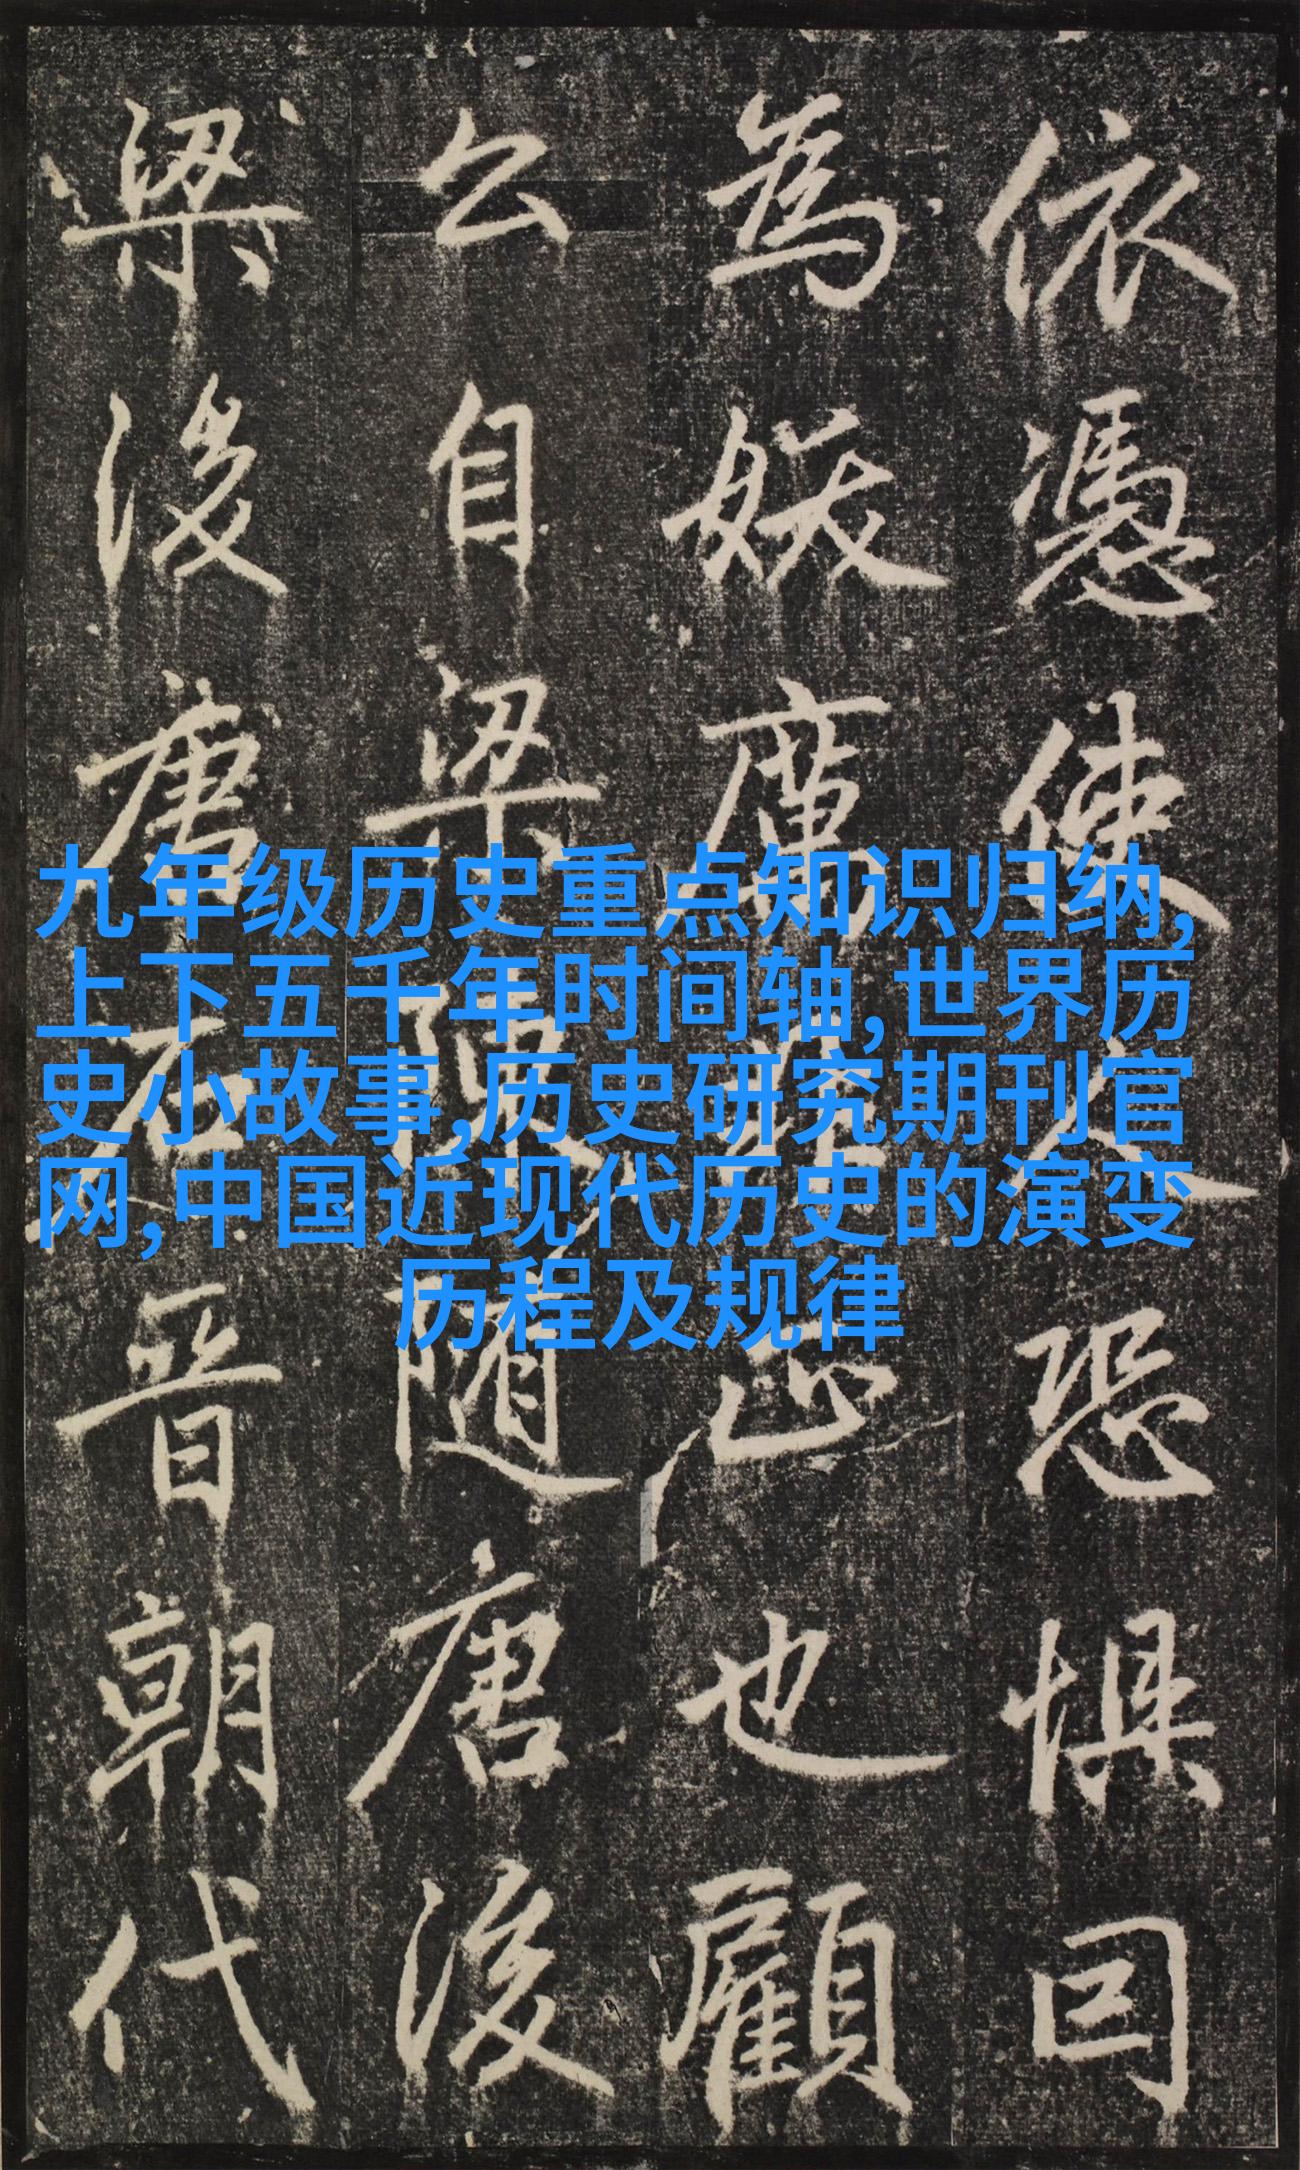 九年级历史重点知识归纳,
上下五千年时间轴,世界历
史小故事,历史研究期刊官
网,中国近现代历史的演变
历程及规律
依憑使人恐惧囙
為妖厲非正也顧
公自梁陳随唐後
梁後唐石晉朝代